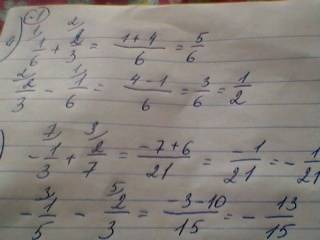 а) 1/6 + 2/3 = (1+4)/6 = 5/6
2/3 - 1/6 = (4-1)/6 = 3/6 = 1/2
) - 1/3 + 2/7 = (-7+6)/21 = -1/21 = - 1/21
- 1/5 - 2/3 = (-3-10)/15 = - 13/15